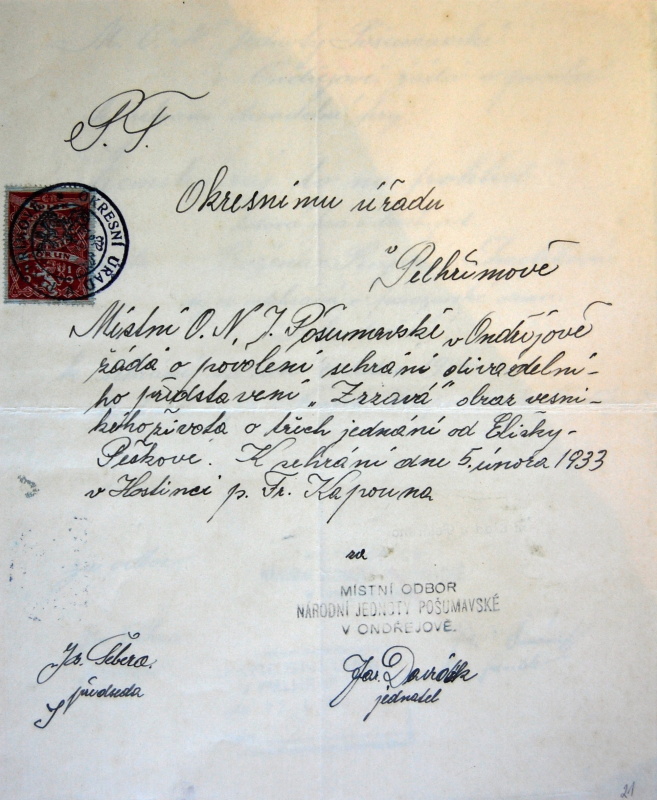 P. T.
Okresnímu úřadu
v Pelhřimově
Místní O. N. J. Pošumavské v Ondřejově
žádá o povolení sehrání divadelní-
ho představení „Zrzavá" obraz vesni-
ckého života o třech jednání od Elišky
Peškové. K sehrání dne 5. února 1933
v Hostinci p. Fr. Kapouna
za
MÍSTNÍ ODBOR
NÁRODNÍ JEDNOTY POŠUMAVSKÉ
V ONDŘEJOVĚ.
předseda
Jar. Dvořák
jednatel
OKRESNÍ ÚŘAD
21